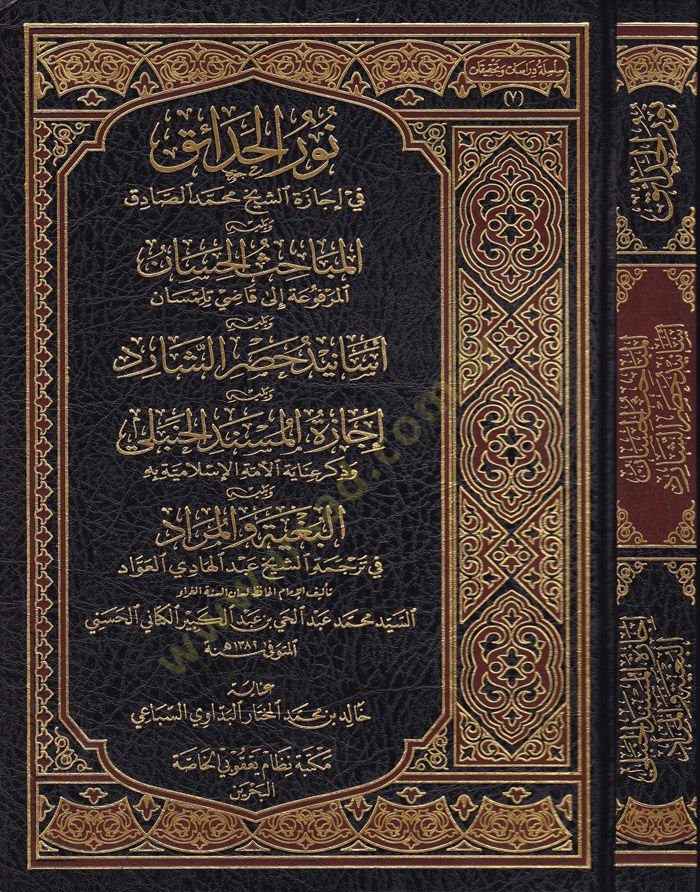 سلسلة دراسات وتحقيقات
(٧)
نُورُ الحَدائِق
في إجازة الشيخ محمد الصادق
ويليه
المباحثُ الحِسَان
المرفوعة إلى قاضي تلمسان
ويليه
أسانيد حصر الشارد
ويليه
إجازة المسند الحنبلي
وذكر عناية الأمة الإسلامية به
ويليه
البغية والمراد
في ترجمة الشيخ عبد الهادي العواد
تأليف الإمام الحافظ لسان السنة الغراء
السيد محمد عبد الحي بن عبد الكبير الكتاني الحسني
المتوفى سنة ١٣٨٢هـ
خالد بن محمد المختار البداوي السباعي
مكتبة نظام يعقوبي الخاصة
البحرين
نور الحدائق
المباحث الحسان
أسانيد حصر الشارد
إجازة المسند الحنبلي
البغية والمراد